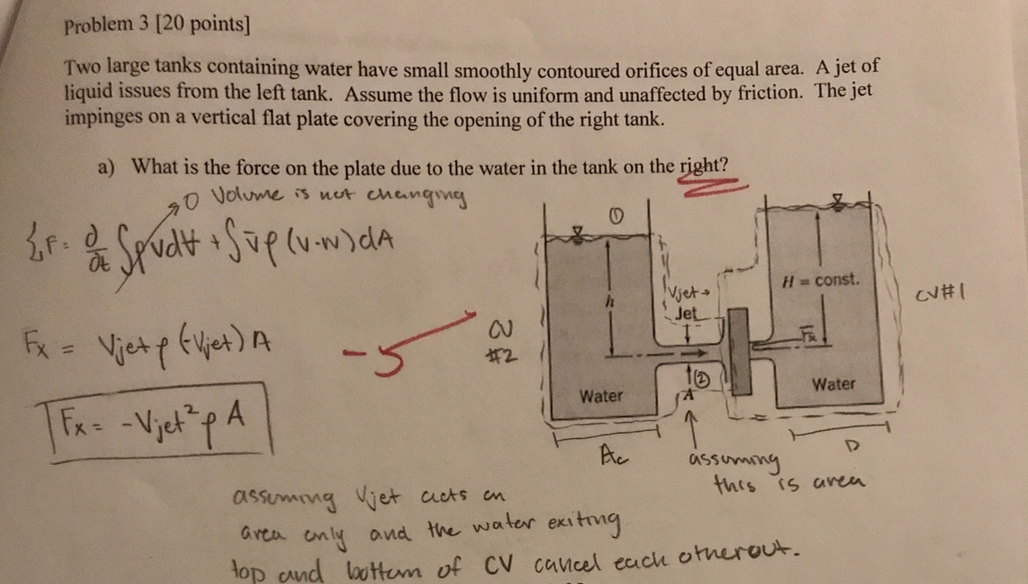 Problem 3 [20 points]
Two large tanks containing water have small smoothly contoured orifices of equal area. A jet of
liquid issues from the left tank. Assume the flow is uniform and unaffected by friction. The jet
impinges on a vertical flat plate covering the opening of the right tank.
a) What is the force on the plate due to the water in the tank on the right?
→0 Volume is not changing
ΣF = ∂/∂t ∫ρvd∀ + ∫v̄ρ(v-w)dA
Fx = Vjet ρ (-Vjet) A
-5
Fx = -Vjet² ρ A
①
h
Water
Vjet→
Jet
②
A
H = const.
Fx
Water
CV#1
CV
#2
Ac
D
assuming
this is area
assuming Vjet acts on
area only and the water exiting
top and bottom of CV cancel each other out.